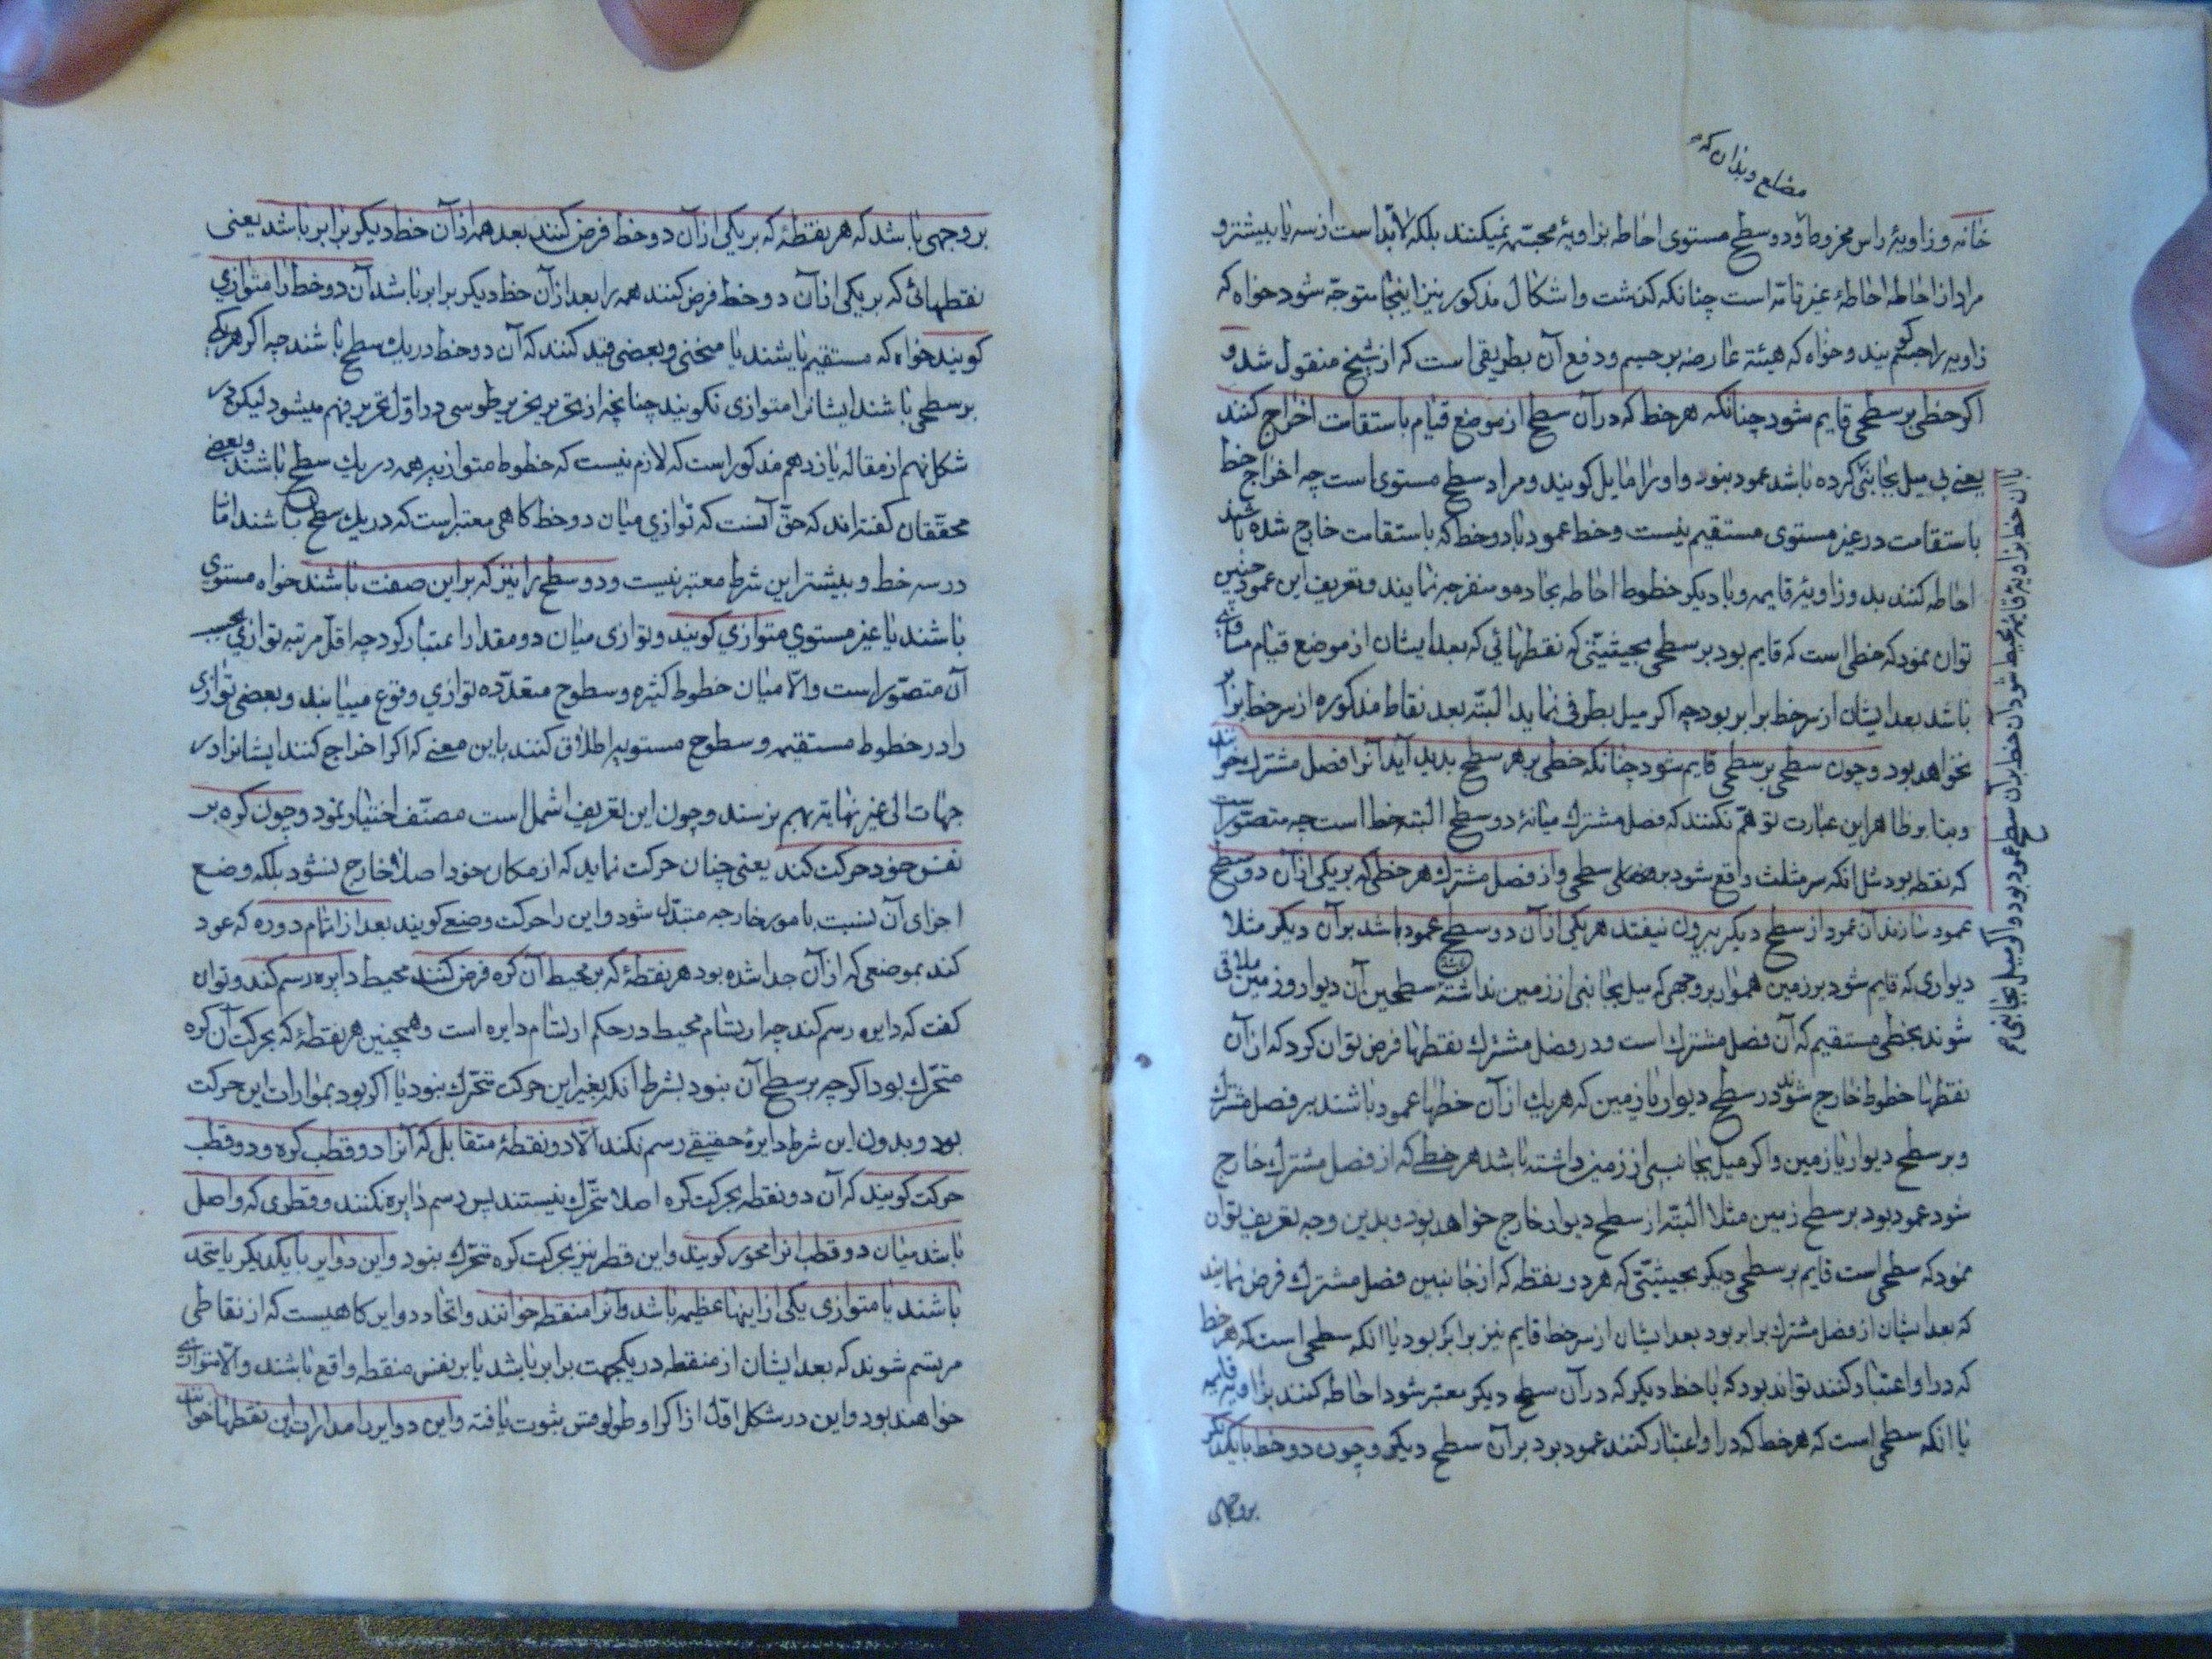 مضلع و بدان که
خانه و زاویهٔ راس مخروط و دو سطح مستوی احاطه بزاویهٔ مجسمه نمیکنند بلکه لابدّ است از سه یا بیشتر و
مراد از احاطه احاطهٔ غیر تامّه است چنانکه کذشت و اشکال مذکور نیز اینجا متوجّه شود خواه که
زاویه را جسم کویند و خواه که هیئة عارضه بر جسم و دفع آن بطریقی است که از شیخ منقول شد و
اکر خطی بر سطحی قایم شود چنانکه هر خط که در آن سطح از موضع قیام باستقامت اخراج کنند
یعنی بی میل بجانبی کرده باشد عمود بنود و او را مایل کویند و مراد سطح مستوی است چه اخراج خط
باستقامت در غیر مستوی مستقیم نیست و خط عمود با دو خط که باستقامت خارج شده باشد
احاطه کنند بدو زاویهٔ قایمه و با دیکر خطوط احاطه بحاده و منفرجه نمایند و تعریف این عمود چنین
توان نمود که خطی است که قایم بود بر سطحی بحیثیّتی که نقطهائی که بعد ایشان از موضع قیام مساوی
باشد بعد ایشان از سر خط برابر بود چه اکر میل بطرفی نماید البتّه بعد نقاط مذکوره از سر خط برابر
نخواهد بود و چون سطحی بر سطحی قایم شود چنانکه خطی بر هر سطح بدید آید آنرا فصل مشترك خوانند
و بنا بر ظاهر این عبارت توهّم نکنند که فصل مشترك میانهٔ دو سطح البته خط است چه متصوّر است
که نقطه بود مثل انکه سر مثلث واقع شود بر سطحی و از فصل مشترك هر خطی که بر یکی از آن دو سطح
عمود سازند آن عمود از سطح دیکر بیرون نیفتد هر یکی از آن دو سطح عمود باشد بر آن دیکر مثلا
دیواری که قایم شود بر زمین هموار بر وجهی که میل بجانبی از زمین نداشته باشد سطحین آن دیوار و زمین ملاقی
شوند بخطی مستقیم که آن فصل مشترك است و در فصل مشترك نقطها فرض توان کرد که از آن
نقطها خطوط خارج شوند در سطح دیوار یا زمین که هر یك از آن خطها عمود باشند بر فصل مشترك
و بر سطح دیوار یا زمین و اکر میل بجانبی از زمین داشته باشد هر خطی که از فصل مشترك خارج
شود عمود بود بر سطح زمین مثلا البتّه از سطح دیوار خارج خواهد بود و بدین وجه تعریف توان
نمود که سطحی است قایم بر سطحی دیکر بحیثیّتی که هر دو نقطه که از جانبین فصل مشترك فرض نمایند
که بعد ایشان از فصل مشترك برابر بود بعد ایشان از سر خط قایم نیز برابر بود یا انکه سطحی است که هر خط
که در او اعتبار کنند تواند بود که با خط دیکر که در آن سطح دیکر معتبر شود احاطه کنند بزاویهٔ قایمه
یا انکه سطحی است که هر خط که در او اعتبار کنند عمود بود بر آن سطح دیکر و چون دو خط با یکدیکر
بر وجهی
با ان خط بزاویهٔ قایمه محیط شود آن خط بر آن سطح عمود بود و اکر میل بجانبی
بر وجهی باشد که هر نقطهٔ که بر یکی از آن دو خط فرض کنند بعد همه از آن خط دیکر برابر باشد یعنی
نقطهائی که بر یکی از آن دو خط فرض کنند همه را بعد از آن خط دیکر برابر باشد آن دو خط را متوازی
کویند خواه که مستقیم باشند یا منحنی و بعضی قید کنند که آن دو خط در یك سطح باشند چه اکر هر یکی
بر سطحی باشند ایشانرا متوازی نکویند چنانچه از تحریر خواجه طوسی در اوّل تحریر فهم میشود لیکن در
شکل نهم از مقالهٔ یازدهم مذکور است که لازم نیست که خطوط متوازیه همه در یك سطح باشند و بعضی
محقّقان کفته اند که حقّ آنست که توازی میان دو خط کاهی معتبر است که در یك سطح باشند امّا
در سه خط و بیشتر این شرط معتبر نیست و دو سطح را نیز که بر این صفت باشند خواه مستوی
باشند یا غیر مستوی متوازی کویند و توازی میان دو مقدار اعتبار کرد چه اقلّ مرتبه توازی بحسب
آن متصوّر است و الّا میان خطوط کثیره و سطوح متعدّده توازی وقوع مییابند و بعضی توازی
را در خطوط مستقیمه و سطوح مستویه اطلاق کنند باین معنی که اکر اخراج کنند ایشانرا در
جهات الی غیر نهایة بهم نرسند و چون این تعریف اشمل است مصنّف اختیار نمود و چون کره بر
نفس خود حرکت کند یعنی چنان حرکت نماید که از مکان خود اصلا خارج نشود بلکه وضع
اجزای آن نسبت بامور خارجه متبدّل شود و این را حرکت وضعی کویند بعد از اتمام دوره که عود
کند بموضعی که از آن جدا شده بود هر نقطهٔ که بر محیط آن کره فرض کنند محیط دایره رسم کند و توان
کفت که دایره رسم کند چه ارتسام محیط در حکم ارتسام دایره است و همچنین هر نقطهٔ که بحرکت آن کره
متحرّك بود اکر چه بر سطح آن بنود بشرط انکه بغیر این حرکت متحرّك بنود یا اکر بود بموازات این حرکت
بود و بدون این شرط دایرهٔ حقیقی رسم نکند الّا دو نقطهٔ متقابل که آنرا دو قطب کره و دو قطب
حرکت کویند که آن دو نقطه بحرکت کره اصلا متحرّك نیستند پس رسم دایره نکنند و قطری که واصل
باشد میان دو قطب انرا محور کویند و این قطر نیز بحرکت کره متحرّك بنود و این دوایر با یکدیکر یا متحد
باشند یا متوازی یکی از اینها عظیمه باشد و انرا منطقه خوانند و اتحاد دوایر کاهیست که از نقاطی
مرتسم شوند که بعد ایشان از منطقه در یکجهت برابر باشد یا بر نفس منطقه واقع باشند و الّا متوازی
خواهند بود و این در شکل اوّل از اکر اوطولوقس بثبوت یافته و این دوایر را مدارات این نقطها خوانند